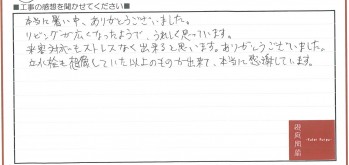 ■工事の感想を聞かせてください■
本当に暑い中、ありがとうございました。
リビングが広くなったようで、うれしく思っています。
来客対応もストレスなく出来ると思います。ありがとうございました。
立水栓も想像していた以上のものが出来て、本当に感謝しています。